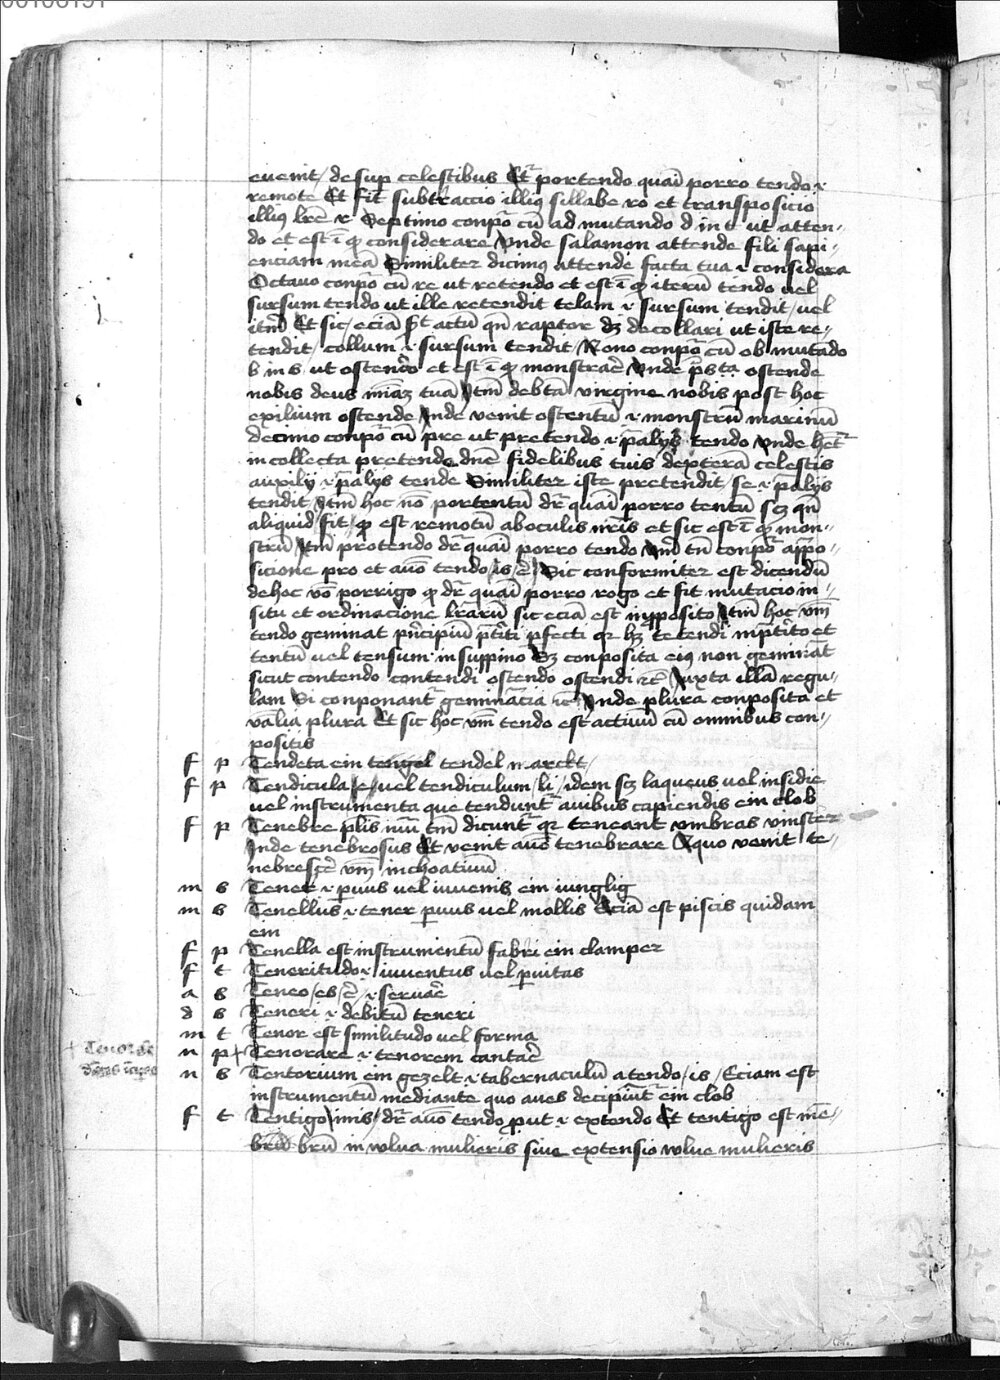 euenit / de sup celestibus Et̃ portendo quasi porro tendo ⁊
remote Et fit subtraccio illiꝰ sillabe ro et transposicio
illiꝰ lr̃e r Septimo conpõ cū ad mutando d in t ut atten-
do et est ī ꝙ considerare Vnde salamon attende fili sapi-
enciam meā Similiter dicimꝰ attende facta tua ⁊ considera
Octauo conpõ cū re ut retendo et est ī ꝙ iterū tendo uel
sursum tendo ut ille retendit telam ⁊ sursum tendit / uel
itm̃ Et sic / eciā actū qñ raptor dꝫ decollari ut iste re-
tendit / collum ⁊ sursum tendit / Nono conpõ cū ob mutādo
b in s ut ostendo et est ī ꝙ monstrare Vnde ps̃ta ostende
nobis deus mīaꝫ tuā Itm̃ debtā virgine nobis post hoc
exilium ostende Inde venit ostentū ⁊ monstrū marinū
decimo conpõ cū pre ut pretendo ⁊ pᵃalijs tendo Vnde het̃
in collecta pretende dñe fidelibus tuis dexterā celestis
auxilij ⁊ pᵃalijs tende Similiter iste pretendit / se ⁊ pᵃalijs
tendit / Itm̃ hoc nō portentū dr̃ quasi porro tentū scꝫ qñ
aliquid / fit / ꝙ est remotū ab oculis nr̃is et sic est ī ꝙ mon-
strū Itm̃ protendo dr̃ quasi porro tendo vm̃ tñ conpõ appo-
sicione pro et auō tendo / is / ē / Sic conformiter est dicendū
de hoc vō porrigo ꝙ dr̃ quasi porro rogo et fit mutacio in
situ et ordinacione lr̃arū sic eciā est in pposito Itm̃ hoc vm̃
tendo geminat pͥncipiū pt̃iti pfecti qr hꝫ tetendi in pt̃ito et
tentū uel tensum in suppino Sꝫ conposita eiꝰ non geminā̃t
sicut contendo contendi ostendo ostendi ⁊c̃ Juxta illā regu-
lam Si conponant̃ geminācia ⁊c̃ Vnde plura conposita et
vᵃalia plura Et sic hoc vm̃ tendo est actiuū cū omnibus con-
positis
f p Tendeta ein tengel tendel marckt /
f p Tendicula / e / vel tendiculum / li / idem scꝫ laqueus vel insidie
vel instrumenta que tendunt̃ auibus capiendis ein clob
f p Tenebre plis nūi tm̃ dicunt̃ qr teneant vmbras vinster
Inde tenebrosus Et venit auō tenebrare A quo venit te-
nebresce vm̃ inchoatiuū
m s Tener ⁊ puus uel iuuenis ein iunglig
m s Tenellus ⁊ tener puus uel mollis Eciā est piscis quidam
ein
f p Tenella est instrumentū fabri ein clamper
f t Teneritudo ⁊ iuuentus uel puitas
a s Teneo / es / ē / ⁊ seruare
d s Teneri ⁊ debitū teneri
m t Tenor est similitudo uel forma
n p + Tenorare ⁊ tenorem cantare
n s Tentorium ein gezelt ⁊ tabernaculū a tendo / is / Eciam est
instrumentū mediante quo aues decipiūt̃ ein clob
f t Tentigo / inis / dr̃ auō tendo put ⁊ extendo Et tentigo est mē-
brū in wlua mulieris siue extensio wlue mulieris